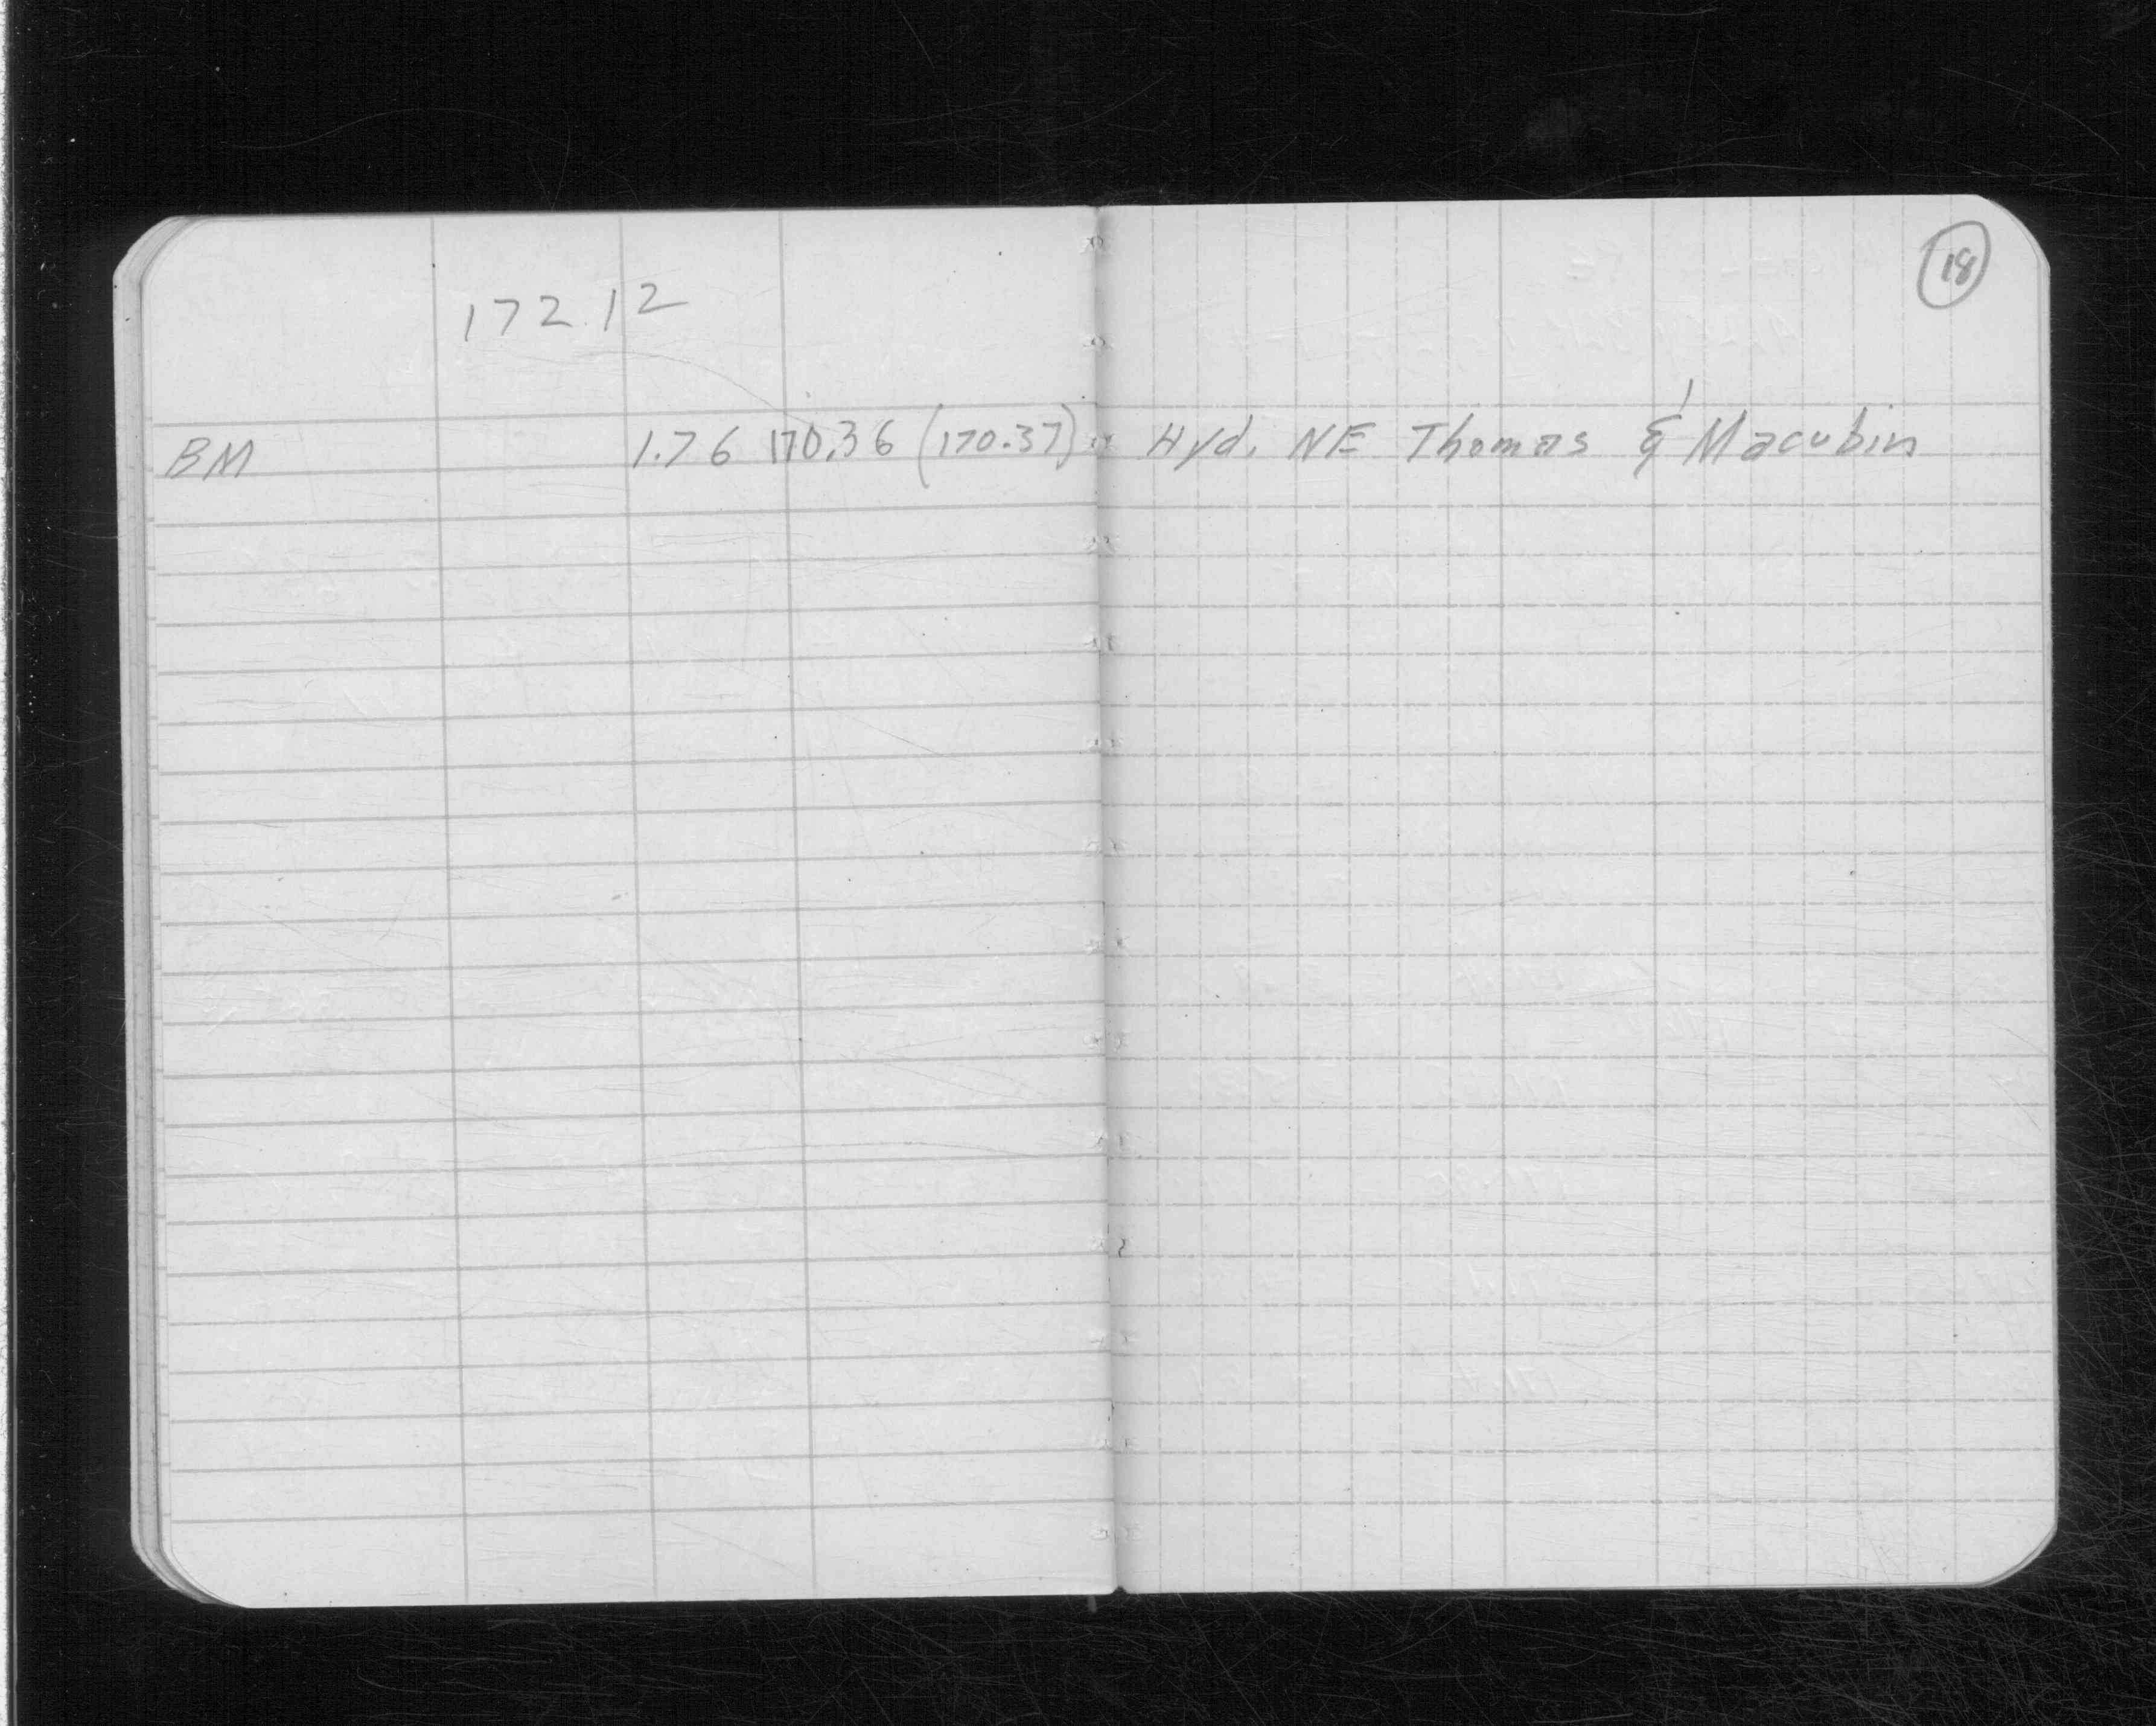 18
172.12
BM 1.76 170.36 (170.37) Hyd. NE Thomas & Macubin